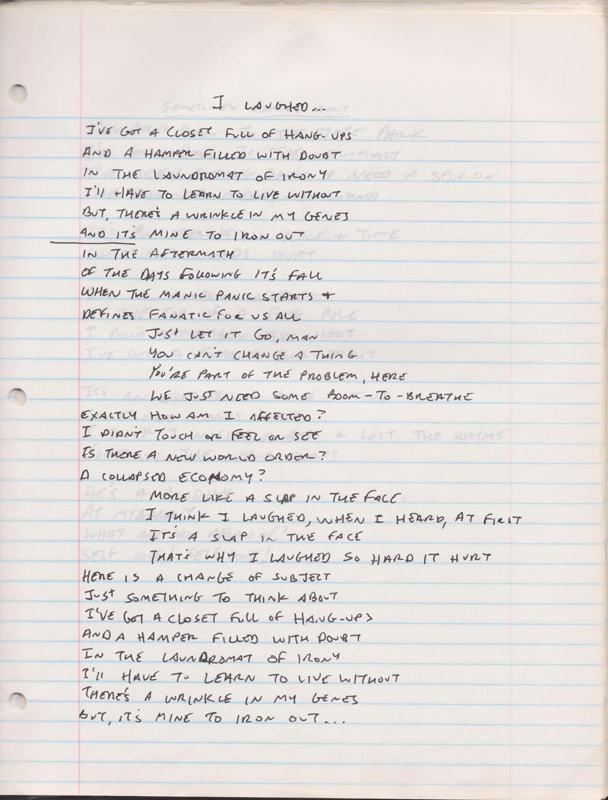 I LAUGHED...
I'VE GOT A CLOSET FULL OF HANG-UPS
AND A HAMPER FILLED WITH DOUBT
IN THE LAUNDROMAT OF IRONY
I'll HAVE TO LEARN TO LIVE WITHOUT
BUT, THERE'S A WRINKLE IN MY GENES
AND IT'S MINE TO IRON OUT
IN THE AFTERMATH
OF THE DAYS FOLLOWING IT'S FALL
WHEN THE MANIC PANIC STARTS &
DEFINES FANATIC FOR US ALL
JUST LET IT GO, MAN
YOU CAN'T CHANGE A THING
YOU'RE PART OF THE PROBLEM, HERE
WE JUST NEED SOME ROOM-TO-BREATHE
EXACTLY HOW AM I AFFECTED?
I DIDN'T TOUCH OR FEEL OR SEE
IS THERE A NEW WORLD ORDER?
A COLLAPSED ECONOMY?
MORE LIKE A SLAP IN THE FACE
I THINK I LAUGHED, WHEN I HEARD, AT FIRST
IT'S A SLAP IN THE FACE
THAT'S WHY I LAUGHED SO HARD IT HURT
HERE IS A CHANGE OF SUBJECT
JUST SOMETHING TO THINK ABOUT
I'VE GOT A CLOSET FULL OF HANG-UPS
AND A HAMPER FILLED WITH DOUBT
IN THE LAUNDROMAT OF IRONY
I'll HAVE TO LEARN TO LIVE WITHOUT
THERE'S A WRINKLE IN MY GENES
BUT, IT'S MINE TO IRON OUT...